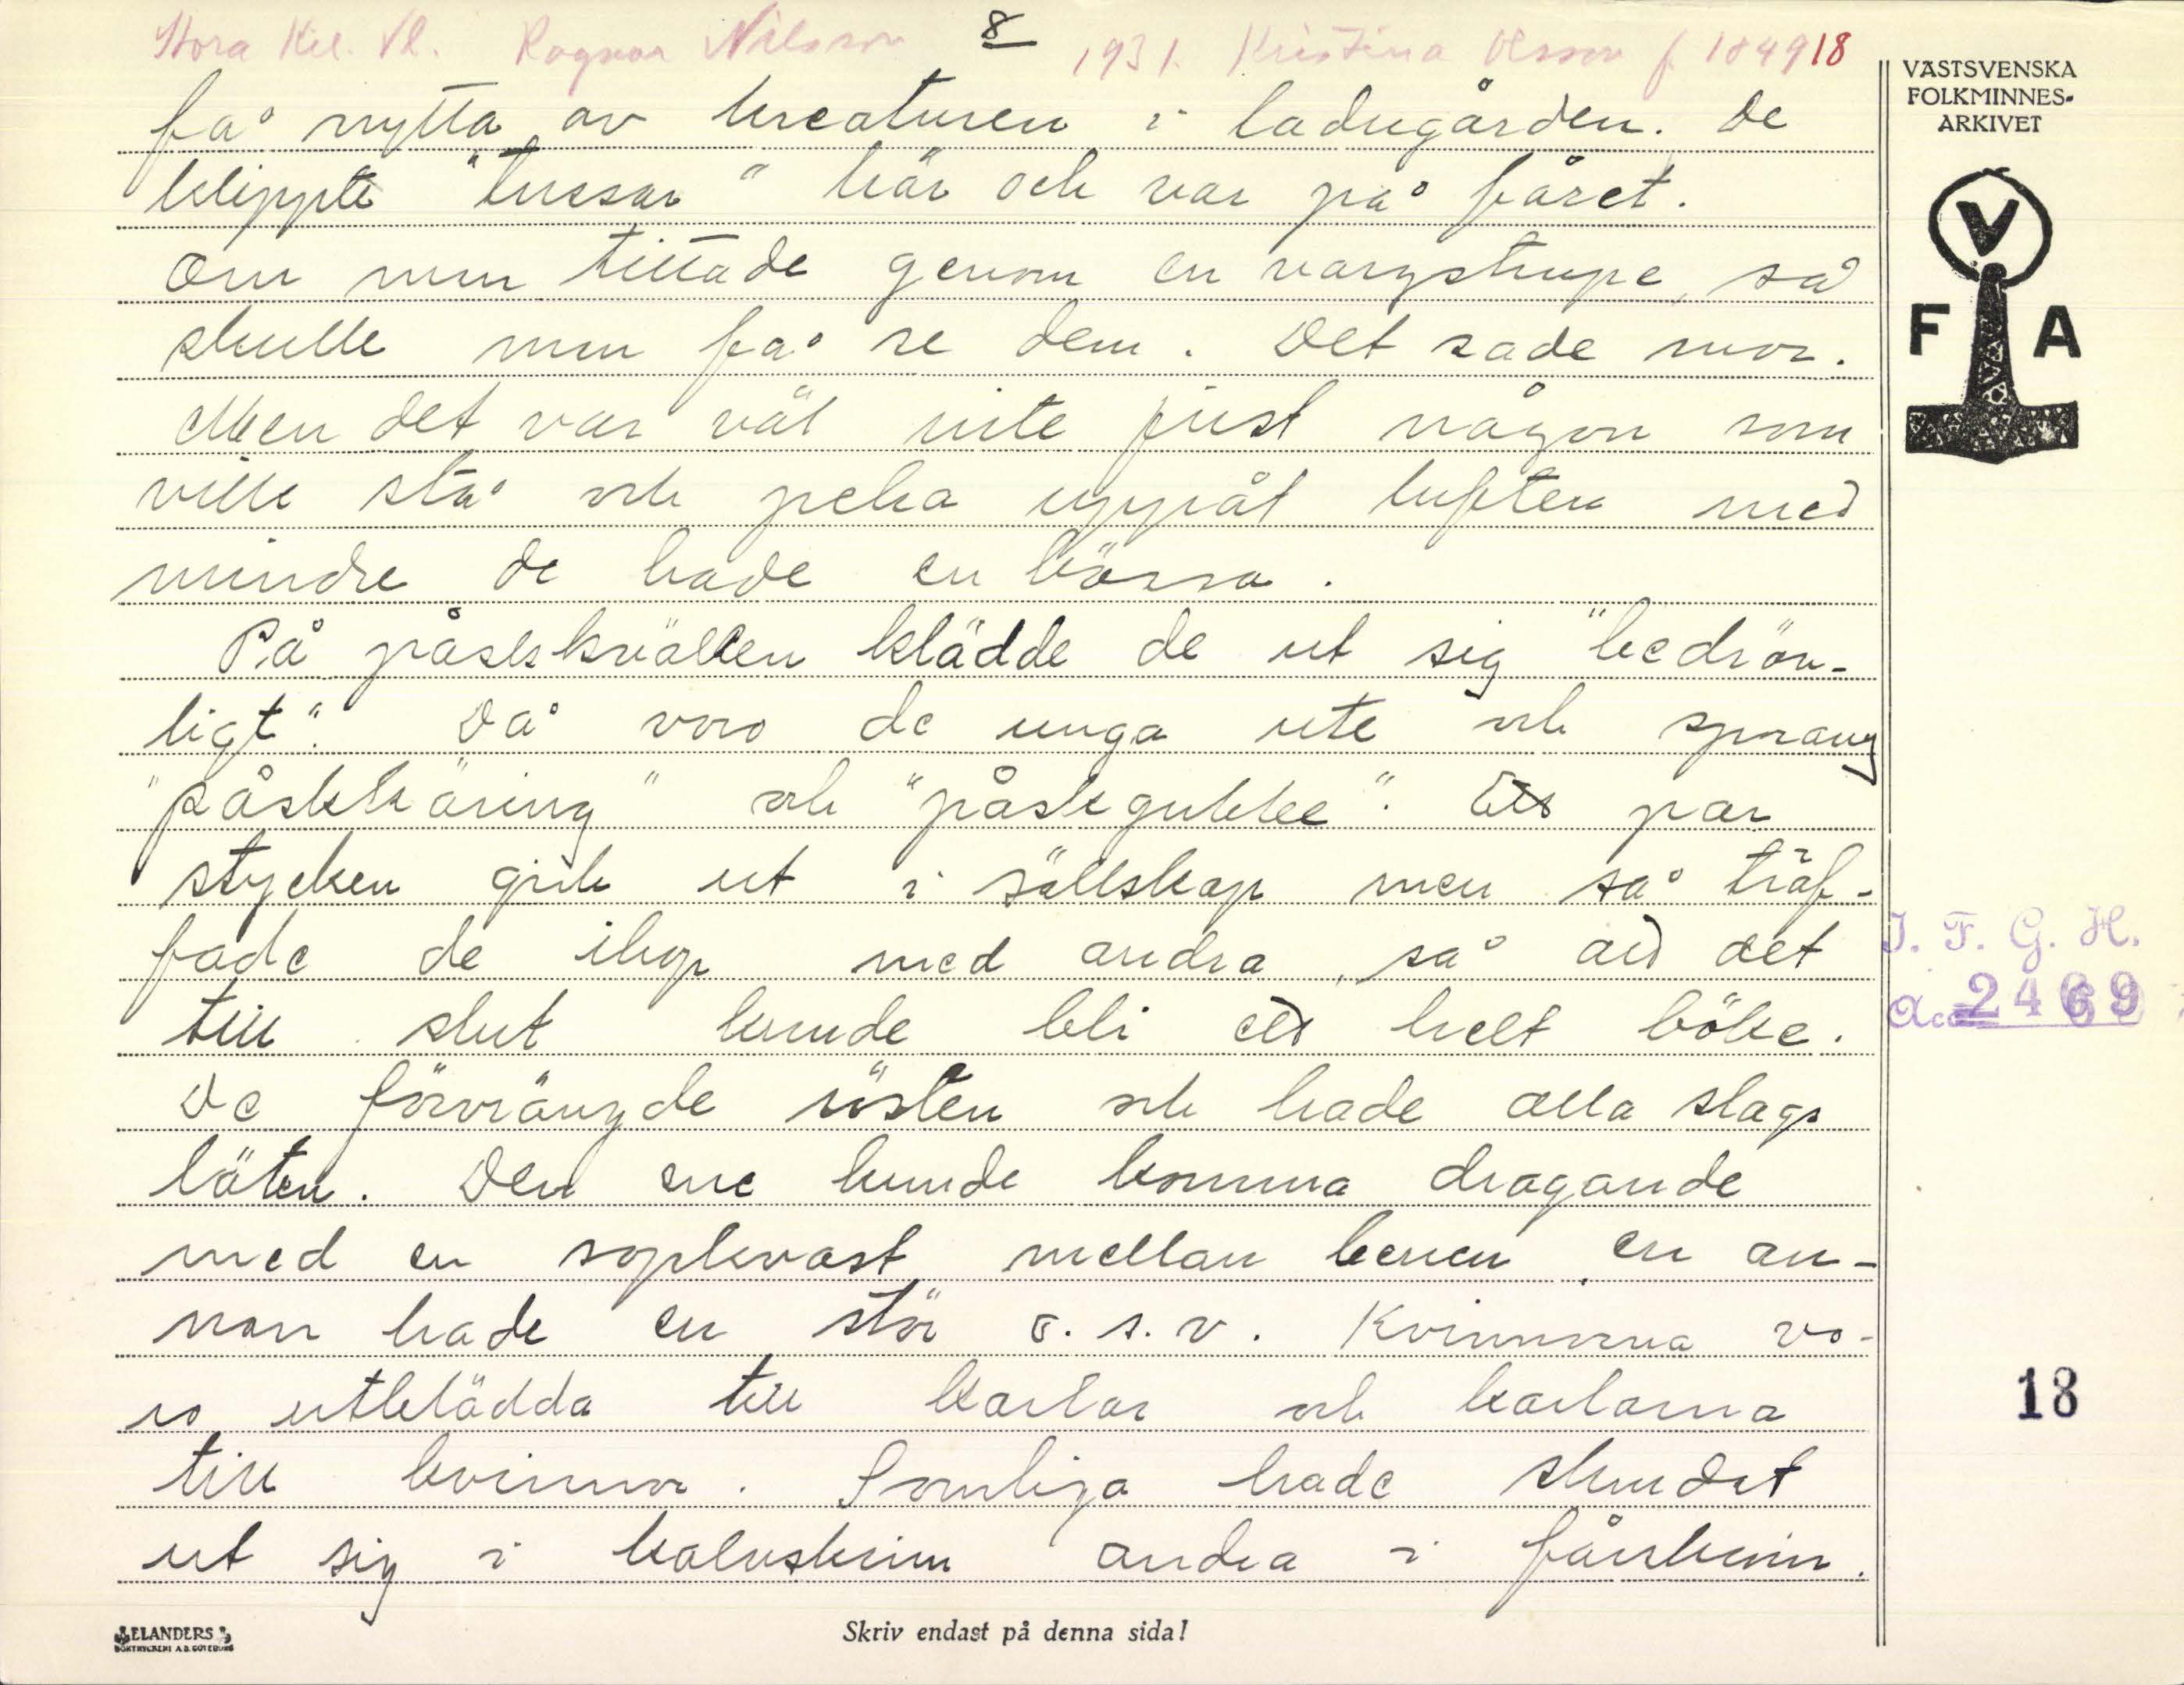 Stora Kil. Vl. Ragnar Nilsson 8 1931. Kristina Olsson f. 1849 18
VÄSTSVENSKA
FOLKMINNES-
ARKIVET
V
F A
få nytta av kreaturen i ladugården. De
klippte "tussar" här och var på fåret.
Om mun tittade genom en vargstrupe, så
skulle mun få se dem. Det sade mor.
Men det var väl inte just någon som
ville stå och peka uppåt luften med
mindre de hade en bössa.
På påskkvällen klädde de ut sig "bedrön-
ligt". Då voro de unga ute och sprang
"påskkäring" och "påskgubbe". Ett par
stycken gick ut i sällskap men så träf-
fade de ihop med andra, så att det
till slut kunde bli ett helt böke.
De förvrängde rösten och hade alla slags
läten. Den ene kunde komma dragande
med en sopkvast mellan benen, en an-
nan hade en stör o.s.v. Kvinnorna vo-
ro utklädda till karlar och karlarna
till kvinnor. Somliga hade skrudat
ut sig i kalvskinn andra i fårskinn.
I. F. G. H.
Acc 2469
18
ELANDERS
BOKTRYCKERI A.B. GÖTEBORG
Skriv endast på denna sida!